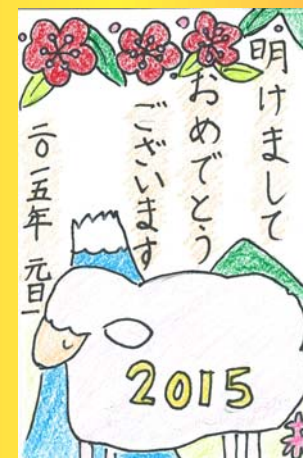 明けまして
おめでとう
ございます
二〇一五年 元旦
2015